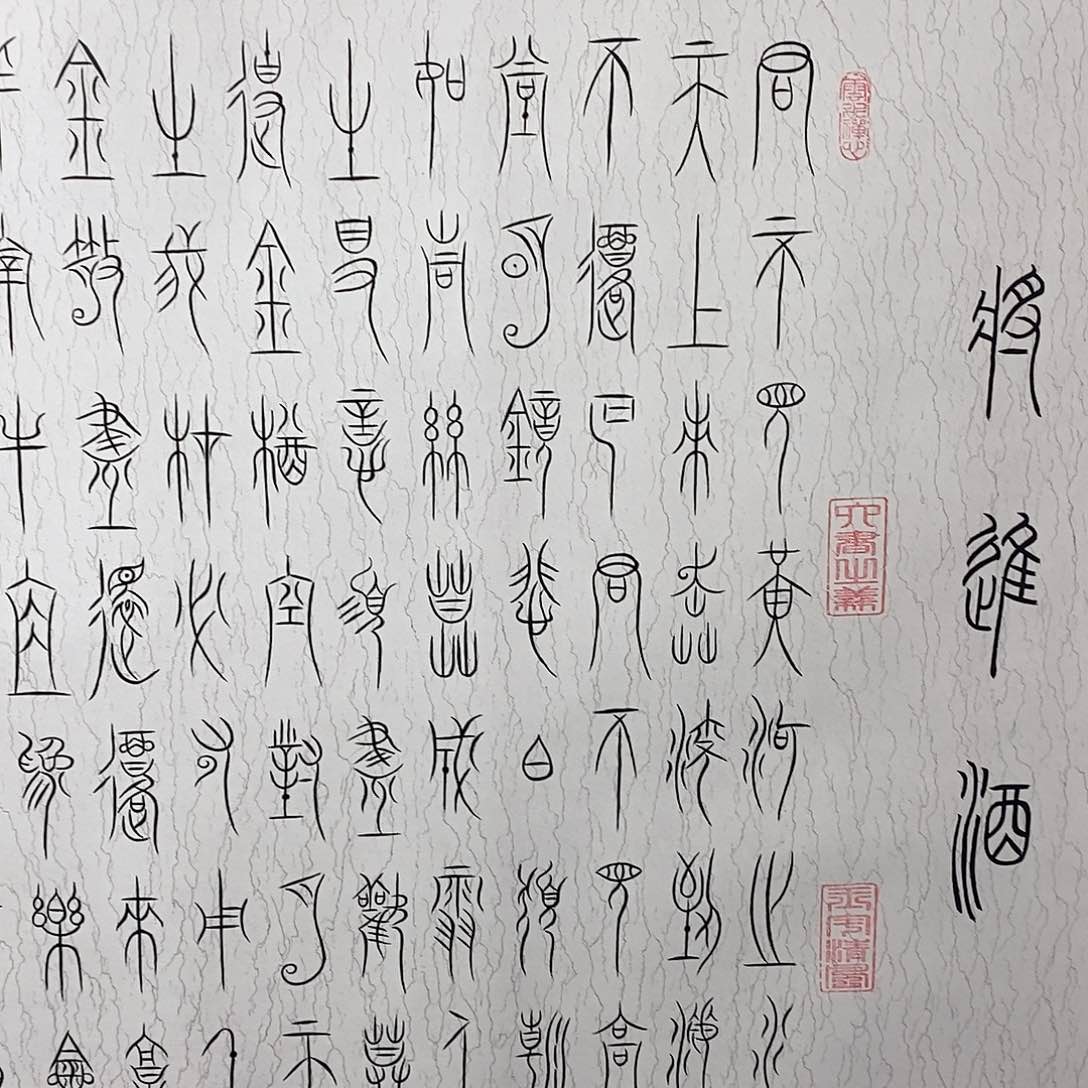 將進酒
君不見黃河之水
天上來奔流到海
不復回君不見高
堂明鏡悲白髮朝
如青絲暮成雪人
生得意須盡歡莫
使金樽空對月天
生我材必有用千
金散盡還復來烹
羊宰牛且為樂會